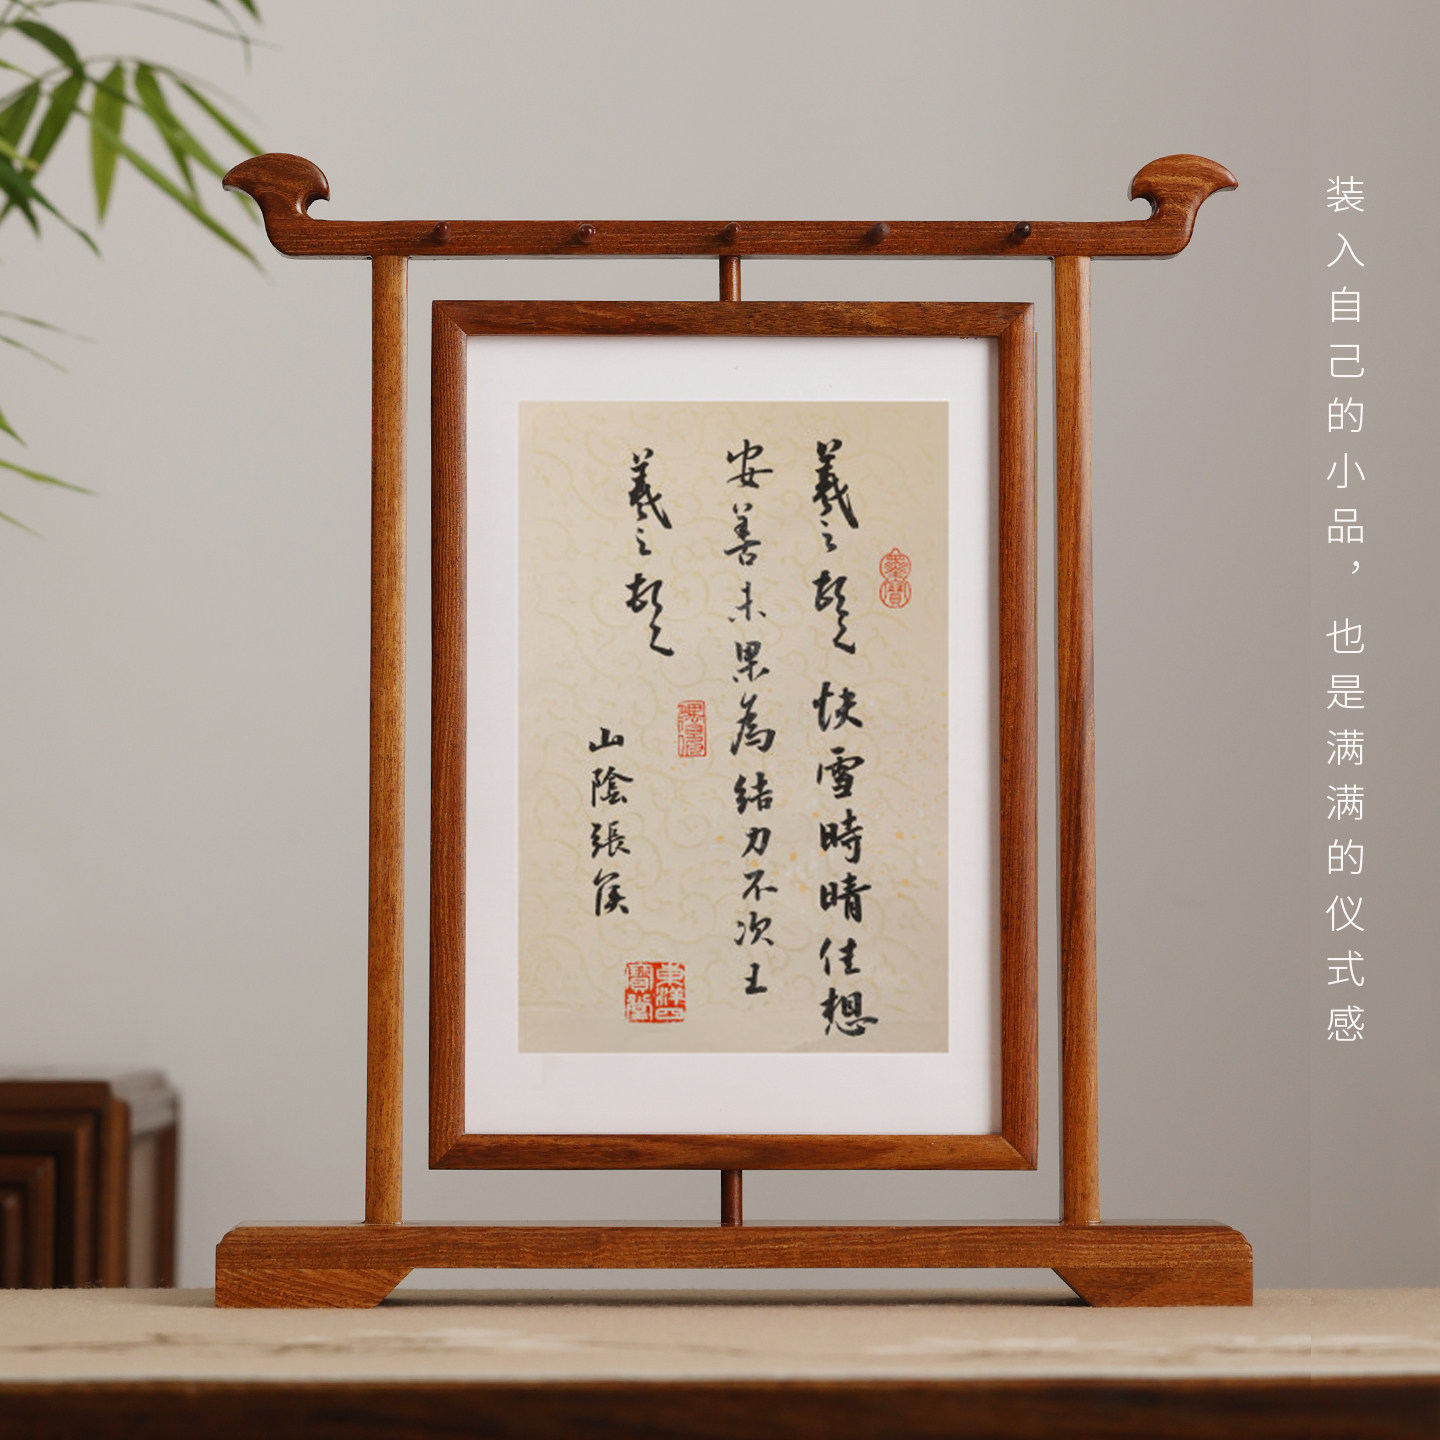 羲之頓首快雪時晴佳想
安善未果為結力不次王
羲之頓首
山陰張侯
装入自己的小品，也是满满的仪式感